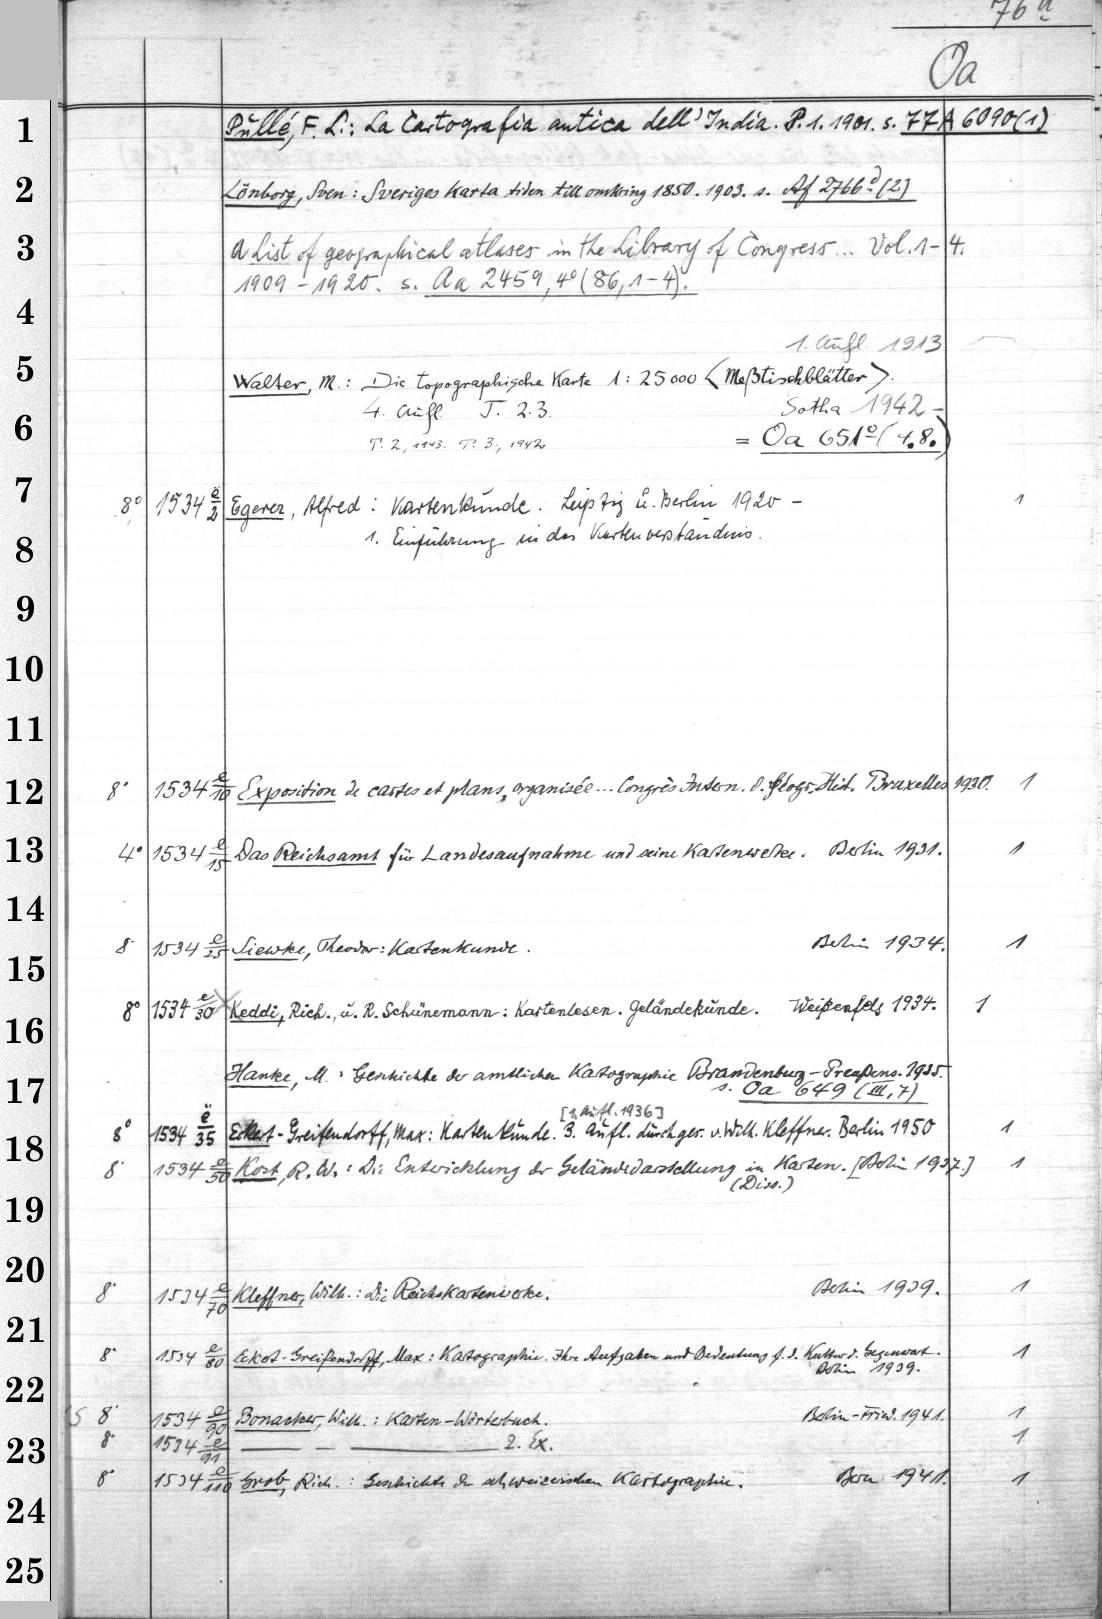 76 a
Oa
1 Pullé, F. L.: La Cartografia antica dell'India. P. 1. 1901. s. 77 A 6090(1)
2 Lönborg, Sven: Sveriges Karta tiden till omkring 1850. 1903. s. Af 2766 d (2)
3 A List of geographical atlases in the Library of Congress... Vol. 1-4.
1909-1920. s. Aa 2459, 4° (86, 1-4).
4
1. Aufl. 1913
5 Walter, M.: Die topographische Karte 1:25000 <Meßtischblätter>.
4. Aufl. T. 2.3. Gotha 1942-
6 T. 2, 1943. T. 3, 1942 = Oa 651° (4.8.)
7 8° 1534 e/2 Egerer, Alfred: Kartenkunde. Leipzig u. Berlin 1920 - 1
8 1. Einführung in das Kartenverständnis.
9
10
11
12 8° 1534 e/10 Exposition de cartes et plans, organisée... Congrès Intern. d. Géogr. Hist. Bruxelles 1930. 1
13 4° 1534 e/15 Das Reichsamt für Landesaufnahme und seine Kartenwerke. Berlin 1931. 1
14
15 8° 1534 e/25 Siewke, Theodor: Kartenkunde. Berlin 1934. 1
16 8° 1534 e/30 Keddi, Rich., u. R. Schünemann: Kartenlesen. Geländekunde. Weißenfels 1934. 1
17 Hanke, M.: Geschichte der amtlichen Kartographie Brandenburg-Preußens. 1935.
s. Oa 649 (III, 7)
[1. Aufl. 1936]
18 8° 1534 e/35 Eckert-Greifendorff, Max: Kartenkunde. 3. Aufl. durchges. v. Wilh. Kleffner. Berlin 1950 1
8° 1534 e/50 Kost, R. W.: Die Entwicklung der Geländedarstellung in Karten. [Berlin 1937.] 1
(Diss.)
19
20 8° 1534 e/70 Kleffner, Wilh.: Die Reichskartenwerke. Berlin 1939. 1
21 8° 1534 e/80 Eckert-Greifendorff, Max: Kartographie. Ihre Aufgaben und Bedeutung f. d. Kultur d. Gegenwart. 1
Berlin 1939.
22 8° 1534 e/90 Bonacker, Wilh.: Karten-Wörterbuch. Berlin-Fried. 1941. 1
23 8° 1534 e/91 — — — 2. Ex. 1
8° 1534 e/110 Grob, Rich.: Geschichte der schweizerischen Kartographie. Bern 1941. 1
24
25